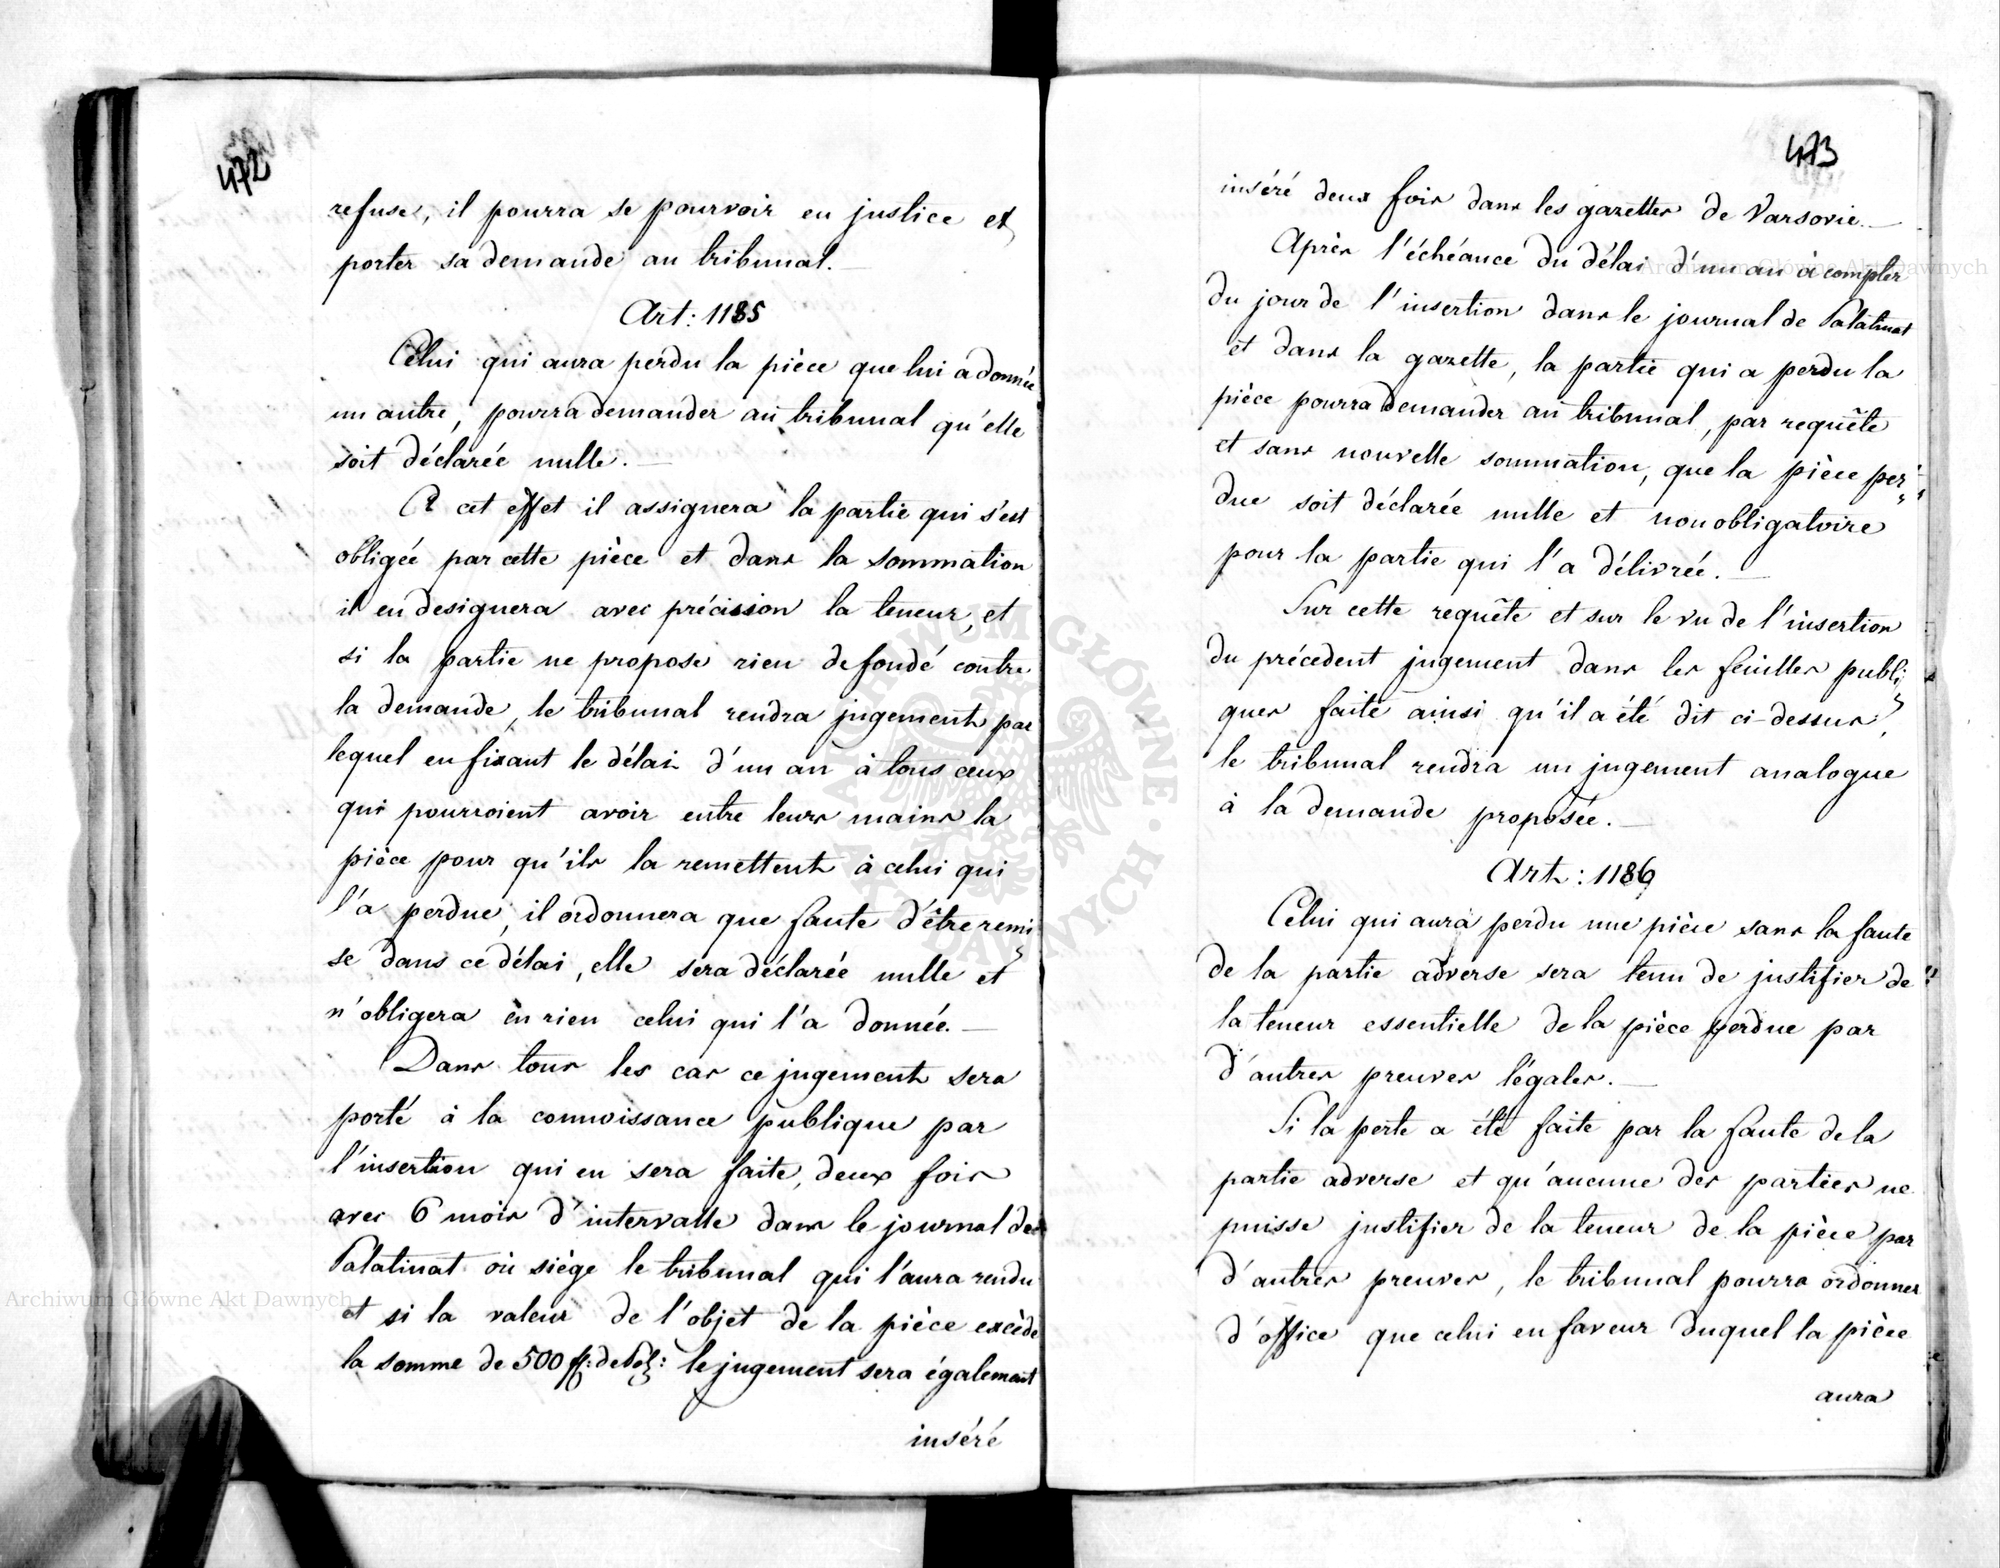 472
refuse, il pourra se pourvoir en justice et
porter sa demande au tribunal.
Art: 1185
Celui qui aura perdu la pièce que lui a donnée
un autre, pourra demander au tribunal qu'elle
soit déclarée nulle. —
A cet effet il assignera la partie qui s'est
obligée par cette pièce et dans la sommation
il en designera avec précision la teneur, et
si la partie ne propose rien de fondé contre
la demande, le tribunal rendra jugement par
lequel en fixant le délai d'un an à tous ceux
qui pourroient avoir entre leurs mains la
pièce pour qu'ils la remettent à celui qui
l'a perdue, il ordonnera que faute d'être remi
se dans ce délai, elle sera déclarée nulle et
n'obligera en rien celui qui l'a donnée. —
Dans tous les cas ce jugement sera
porté à la connoissance publique par
l'insertion qui en sera faite, deux fois
avec 6 mois d'intervalle dans le journal de
Palatinat où siège le tribunal qui l'aura rendu
et si la valeur de l'objet de la pièce excède
la somme de 500 fl: de Pol: le jugement sera également
inséré
473
inséré deux fois dans les gazettes de Varsovie. —
Après l'échéance du délai d'un an à compter
du jour de l'insertion dans le journal de Palatinat
et dans la gazette, la partie qui a perdu la
pièce pourra demander au tribunal, par requête
et sans nouvelle sommation, que la pièce per
due soit déclarée nulle et non obligatoire
pour la partie qui l'a délivrée. —
Sur cette requête et sur le vu de l'insertion
du précedent jugement dans les feuilles publi
ques faite ainsi qu'il a été dit ci-dessus,
le tribunal rendra un jugement analogue
à la demande proposée. —
Art: 1186
Celui qui aura perdu une pièce sans la faute
de la partie adverse sera tenu de justifier de
la teneur essentielle de la pièce perdue par
d'autres preuves légales. —
Si la perte a été faite par la faute de la
partie adverse et qu'aucune des parties ne
puisse justifier de la teneur de la pièce par
d'autres preuves, le tribunal pourra ordonner
d'office que celui en faveur duquel la pièce
aura
ARCHIWUM GŁÓWNE AKT DAWNYCH
Archiwum Główne Akt Dawnych
Archiwum Główne Akt Dawnych